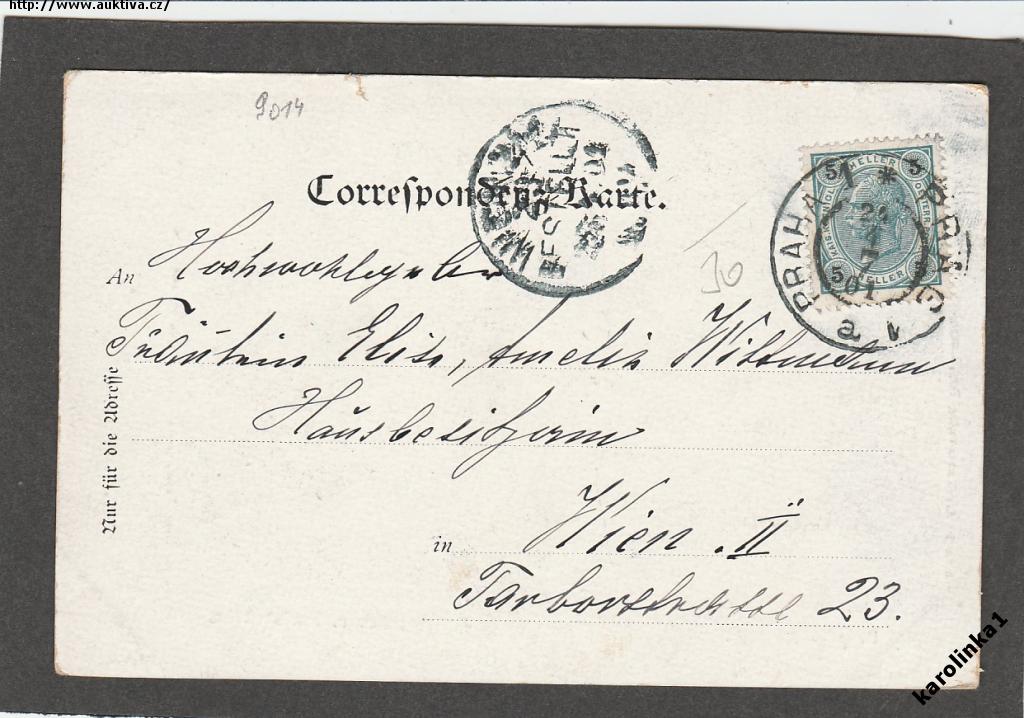 http://www.auktiva.cz/
9014
Correspondenz-Karte.
BESTELLT
PRAHA 1 * PRAG
24 7 01
a
5 HELLER 5
5 HELLER
30
An Hochwohlgeboren
Fräulein Elise, Amelie Wittmann
Hausbesitzerin
in Wien. II
Tarborstrasse 23.
Nur für die Adresse
karolinka1